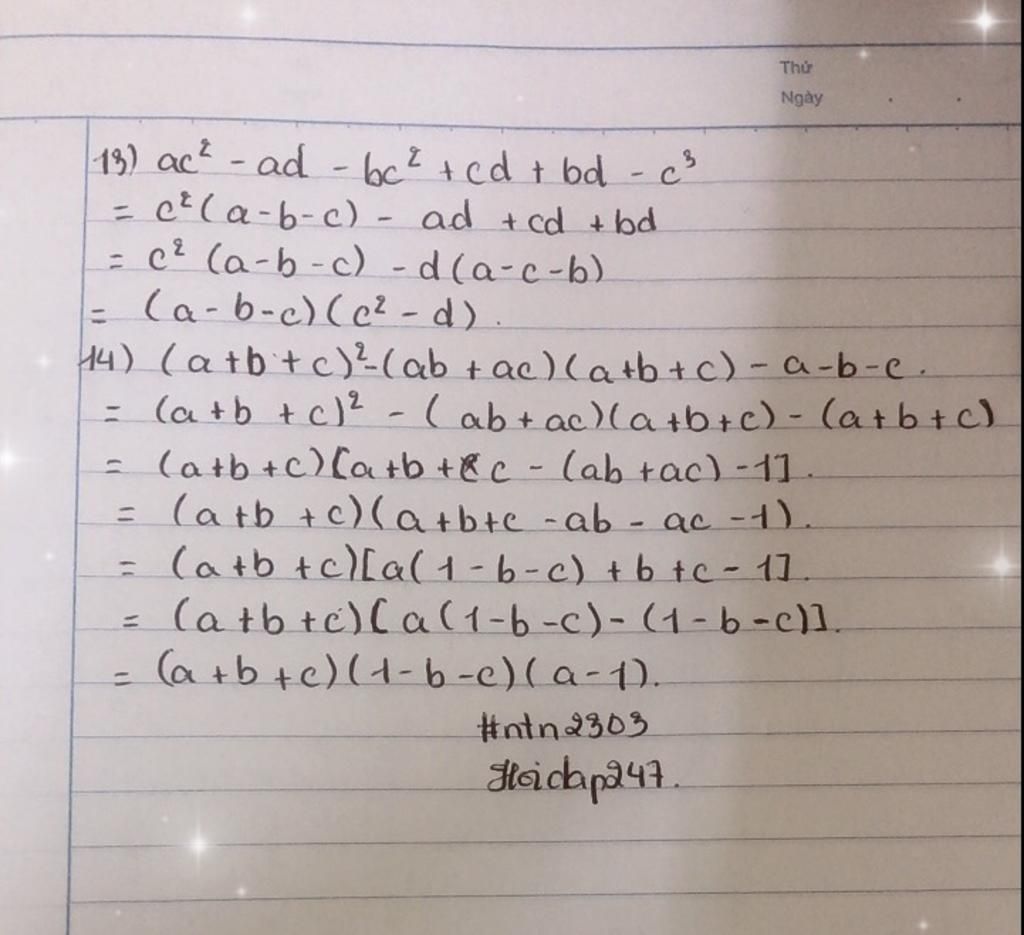 Thứ
Ngày . .
13) ac² - ad - bc² + cd + bd - c³
= c²(a-b-c) - ad + cd + bd
= c² (a-b-c) - d(a-c-b)
= (a-b-c)(c² - d).
14) (a+b+c)²-(ab+ac)(a+b+c) - a-b-c.
= (a+b+c)² - (ab+ac)(a+b+c) - (a+b+c)
= (a+b+c)[a+b+c - (ab+ac) -1].
= (a+b+c)(a+b+c -ab - ac -1).
= (a+b+c)[a(1-b-c) +b+c-1].
= (a+b+c)[a(1-b-c)-(1-b-c)].
= (a+b+c)(1-b-c)(a-1).
#ntn2303
Hoidap247.